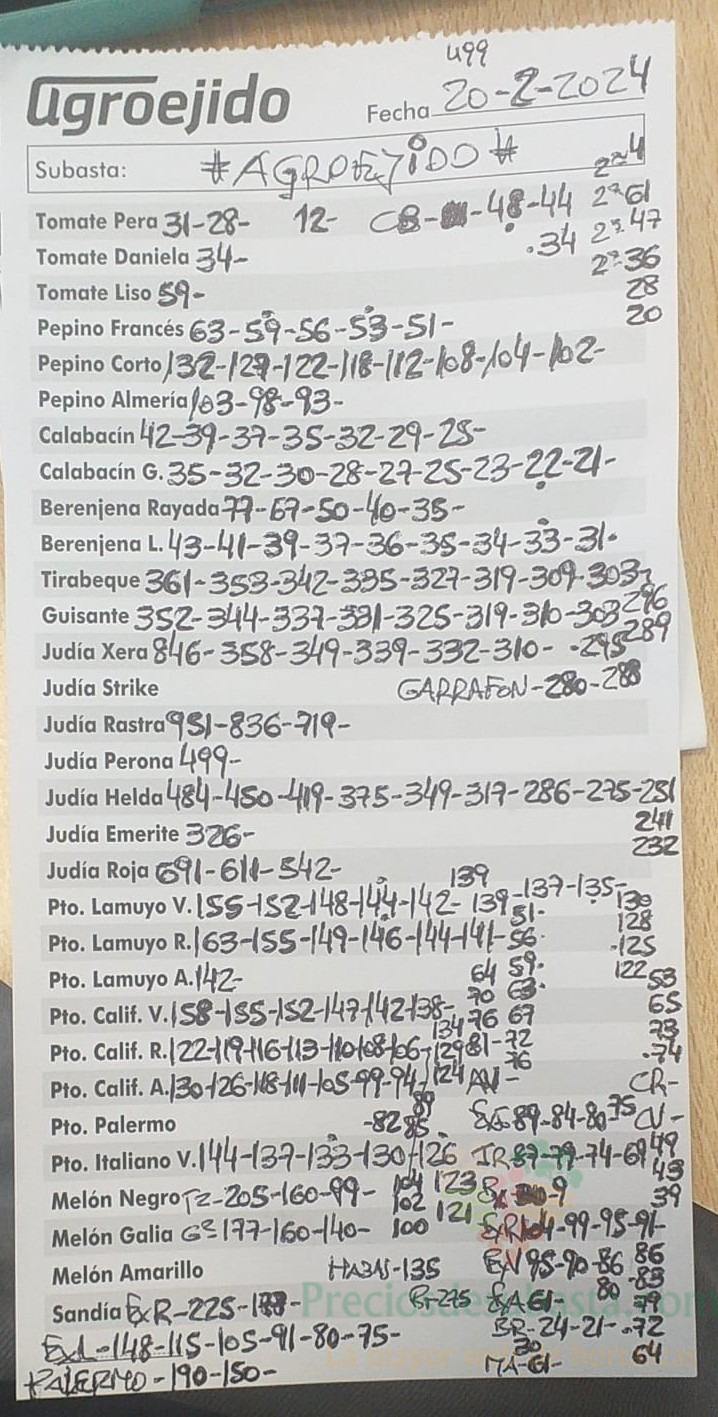 499
agroejido
Fecha 20-2-2024
Subasta: #AGROEJIDO#
Tomate Pera 31-28- 12- 48-44
Tomate Daniela 34- .34
Tomate Liso 59-
28
20
Pepino Francés 63-59-56-53-51-
Pepino Corto 132-127-122-118-112-108-104-102-
Pepino Almería 103-98-93-
Calabacín 42-39-37-35-32-29-25-
Calabacín G. 35-32-30-28-27-25-23-22-21-
Berenjena Rayada 77-67-50-40-35-
Berenjena L. 43-41-39-37-36-35-34-33-31.
Tirabeque 361-353-342-335-327-319-309-303-
296
Guisante 352-344-337-331-325-319-310-303
289
Judía Xera 846-358-349-339-332-310- -295
Judía Strike GARRAFON-280-288
Judía Rastra 951-836-719-
Judía Perona 499-
Judía Helda 484-450-419-375-349-317-286-275-251
241
Judía Emerite 326-
232
Judía Roja 691-611-542-
139
Pto. Lamuyo V. 155-152-148-144-142-139-137-135-
130
51-
128
Pto. Lamuyo R. 163-155-149-146-144-141-56.
-125
Pto. Lamuyo A. 142-
64 59.
122 53
70 63.
65
Pto. Calif. V. 158-155-152-147-142-138-
134 76 67
73
Pto. Calif. R. 122-119-116-113-110-108-106-129 81-72
.74
76
Pto. Calif. A. 130-126-118-111-105-99-94-124
CR-
Pto. Palermo -82 85
89
89-84-80 75
Pto. Italiano V. 144-137-133-130-126 87-79-74-69
49
43
39
Melón Negro TZ-205-160-99- 104 123
102 121
Melón Galia Gº 177-160-140- 100 ExR 104-99-95-91-
Melón Amarillo HABAS-135 95-90-86 86
80 -83
Sandía ExR-225- 79
Preciosdesubasta.com
BR-24-21- -72
ExL-148-115-105-91-80-75-
30
64
PALERMO-190-150- MA-61-